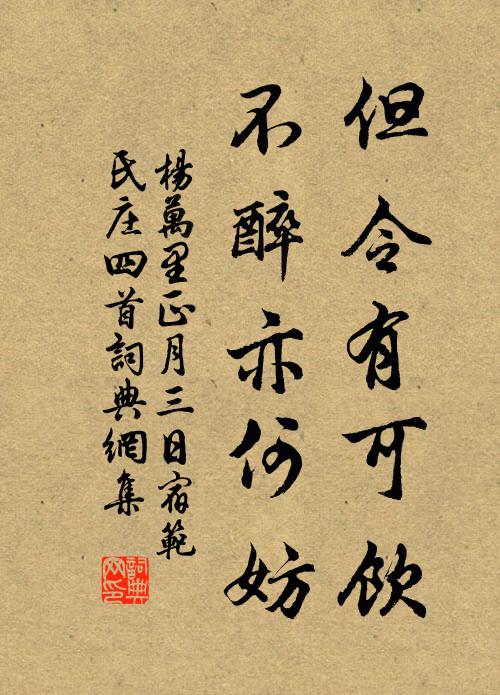 但令有可飲
不醉亦何妨
楊萬里正月三日宿範
氏庄四首詞典網集
詞典
网印